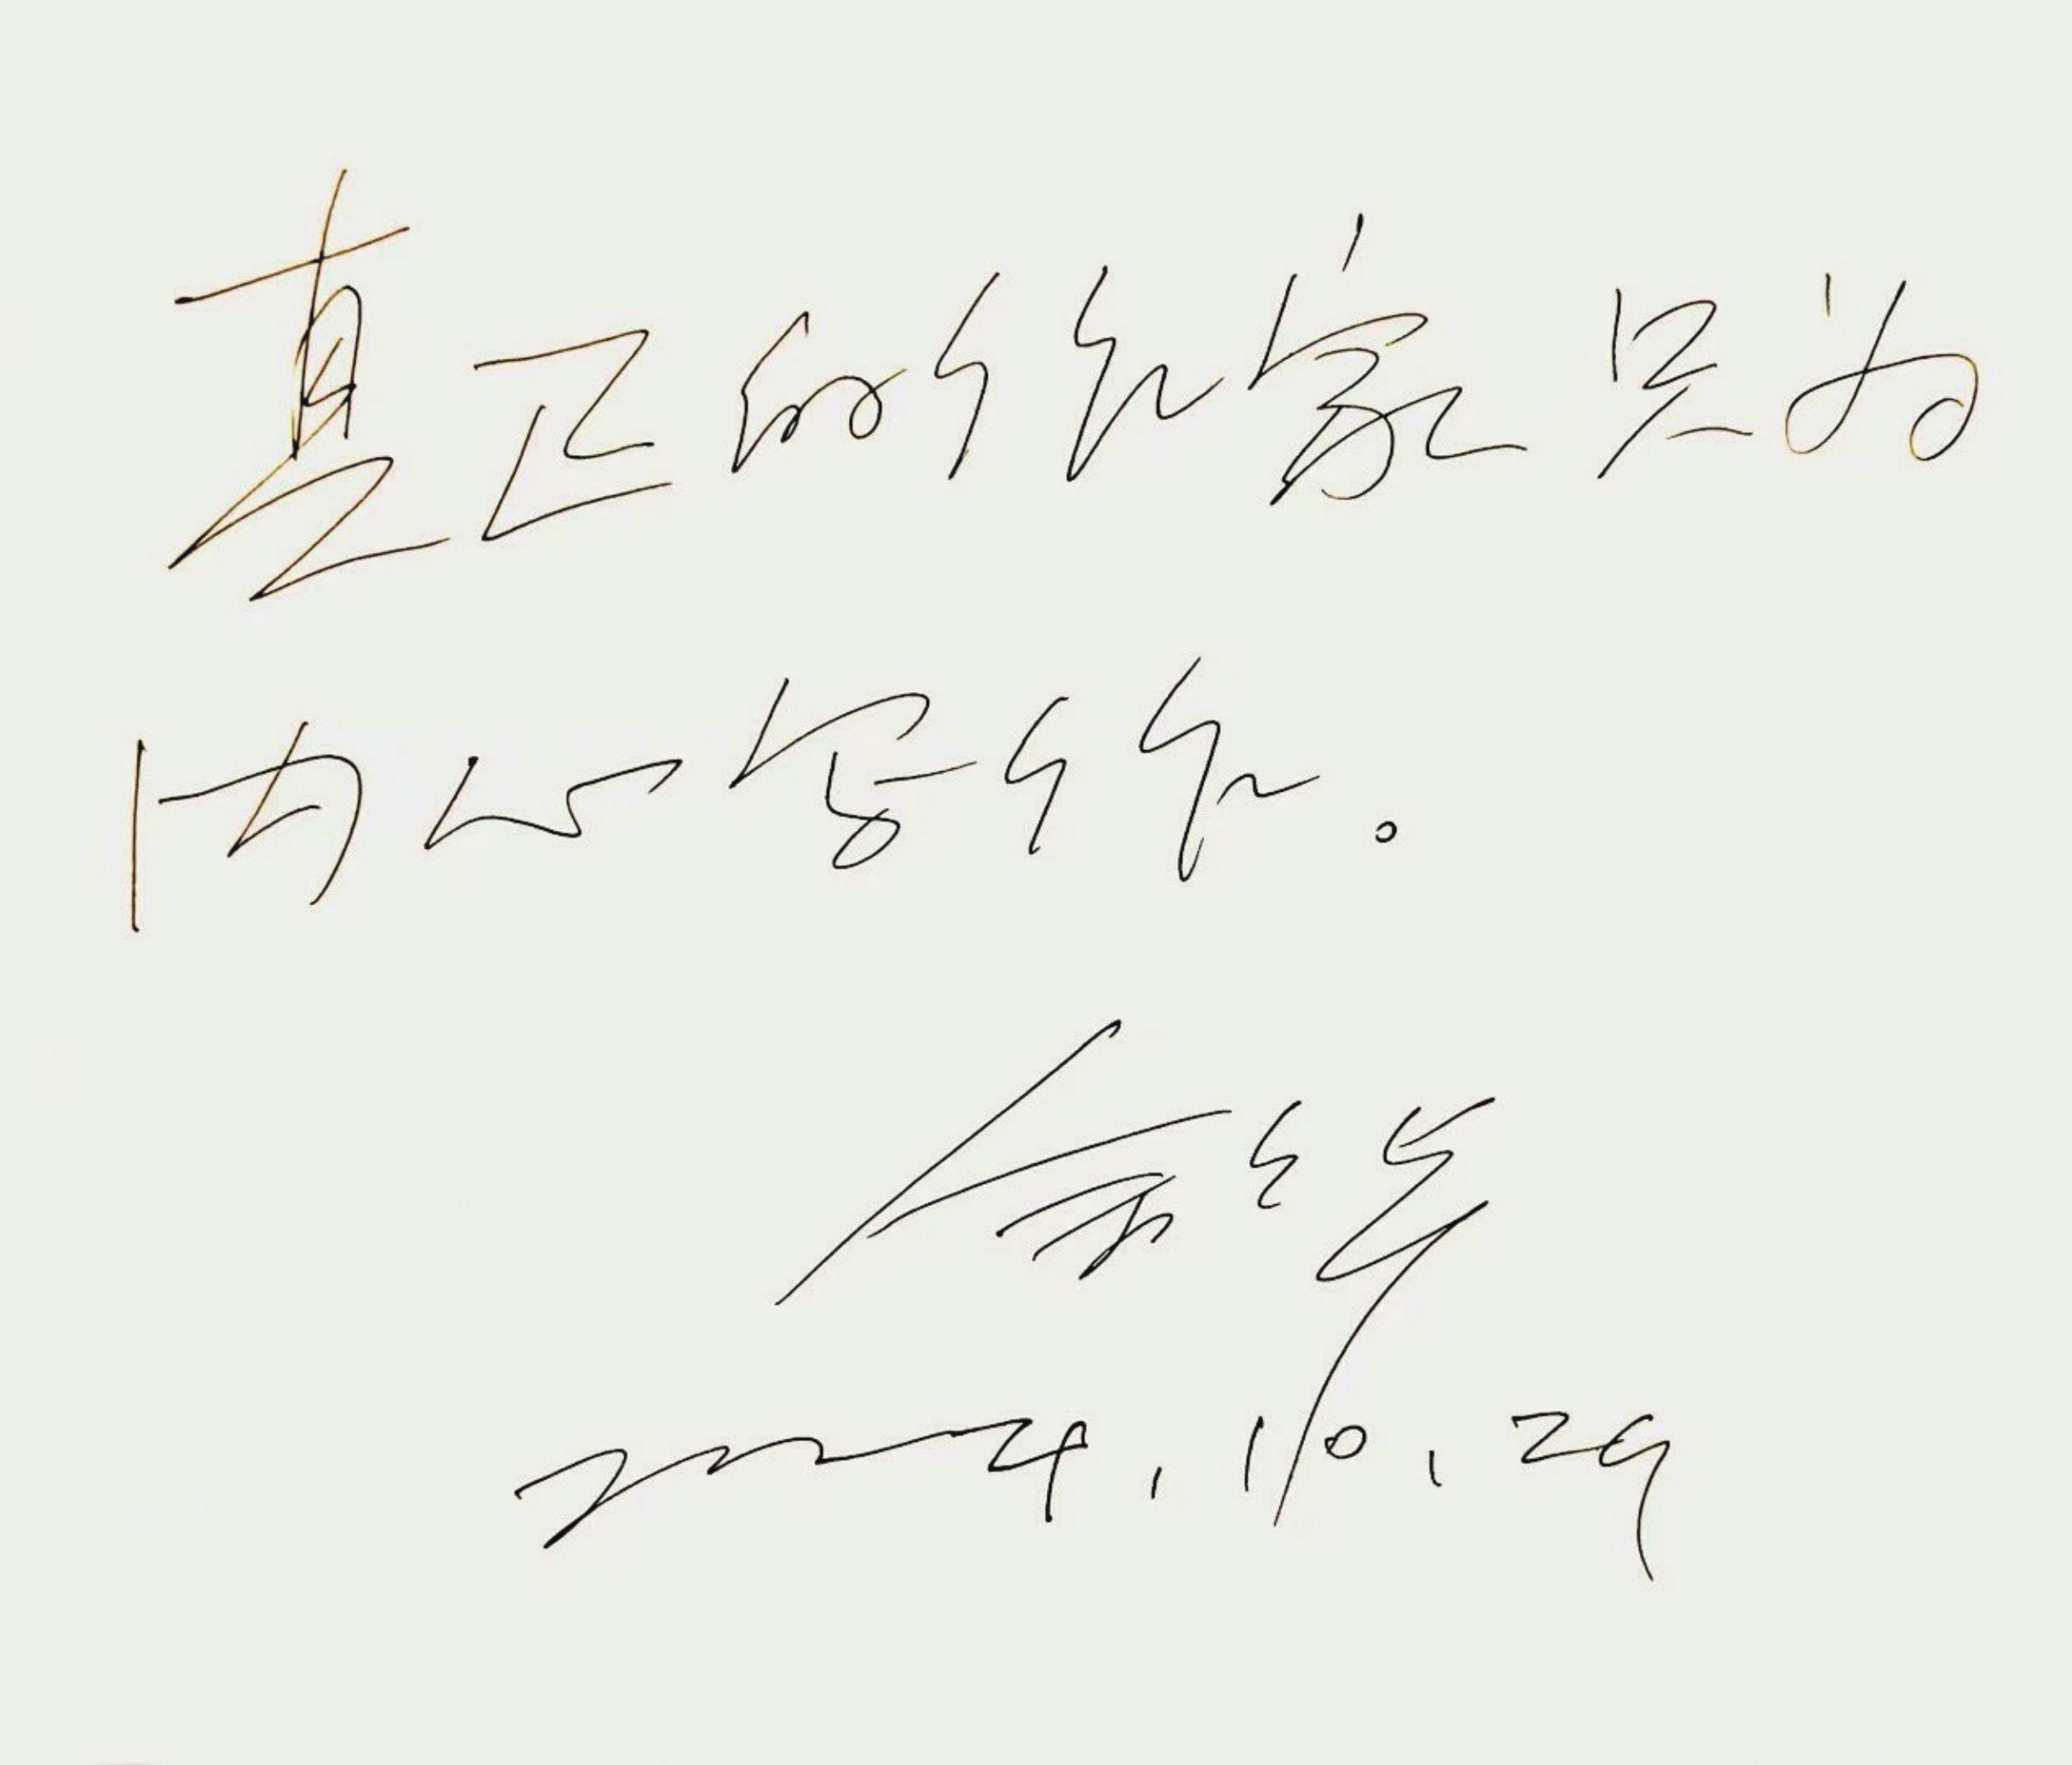 真正的作家只为
内心写作。
余华
2024.10.29